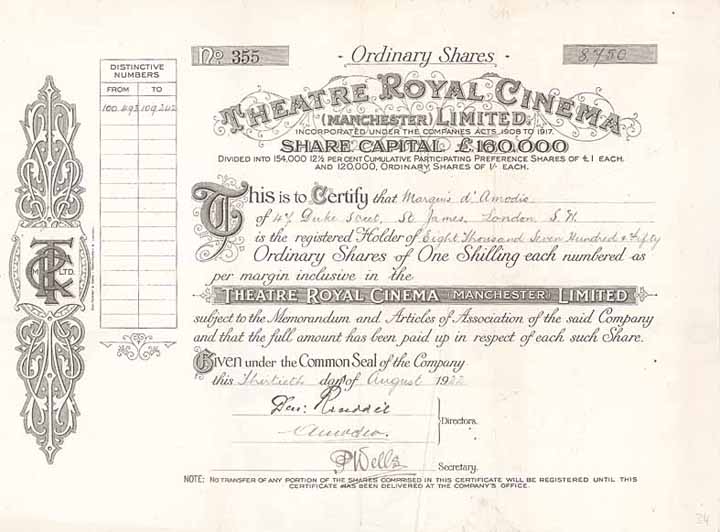 No 355
- Ordinary Shares -
8750
DISTINCTIVE
NUMBERS
FROM TO
100.493 109.242
THEATRE ROYAL CINEMA
(MANCHESTER) LIMITED.
INCORPORATED UNDER THE COMPANIES ACTS 1908 TO 1917.
SHARE CAPITAL £160,000
DIVIDED INTO 154,000 12½ PER CENT CUMULATIVE PARTICIPATING PREFERENCE SHARES OF £1 EACH.
AND 120,000, ORDINARY, SHARES OF 1/- EACH.
This is to Certify that Marquis d'Amodio
of 47 Duke Street, St James, London S.W.
is the registered Holder of Eight Thousand Seven Hundred & Fifty
Ordinary Shares of One Shilling each numbered as
per margin inclusive in the
THEATRE ROYAL CINEMA (MANCHESTER) LIMITED
subject to the Memorandum and Articles of Association of the said Company
and that the full amount has been paid up in respect of each such Share.
Given under the Common Seal of the Company
this Thirtieth day of August 1922
Amodio.
Directors.
PWells
Secretary.
NOTE: NO TRANSFER OF ANY PORTION OF THE SHARES COMPRISED IN THIS CERTIFICATE WILL BE REGISTERED UNTIL THIS
CERTIFICATE HAS BEEN DELIVERED AT THE COMPANY'S OFFICE.
TRC
M LTD.
34